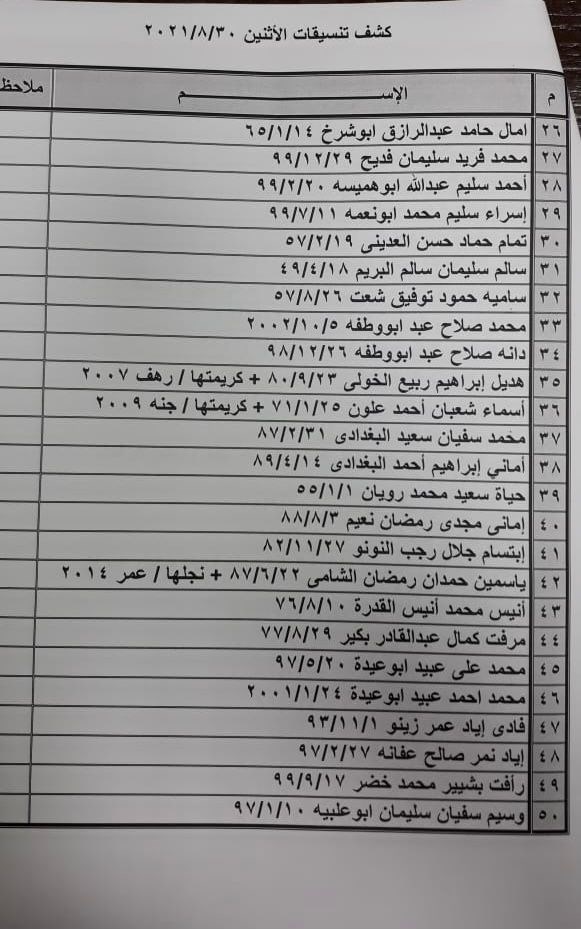 كشف تنسيقات الأثنين ٢٠٢١/٨/٣٠
م الإســـــــــــم ملاحظ
٢٦ امال حامد عبدالرازق ابوشرخ ٦٥/١/١٤
٢٧ محمد فريد سليمان فديح ٩٩/١٢/٢٩
٢٨ أحمد سليم عبدالله ابوهميسه ٩٩/٢/٢٠
٢٩ إسراء سليم محمد ابونعمه ٩٩/٧/١١
٣٠ تمام حماد حسن العدينى ٥٧/٢/١٩
٣١ سالم سليمان سالم البريم ٤٩/٤/١٨
٣٢ ساميه حمود توفيق شعت ٥٧/٨/٢٦
٣٣ محمد صلاح عبد ابووطفه ٢٠٠٢/١٠/٥
٣٤ دانه صلاح عبد ابووطفه ٩٨/١٢/٢٦
٣٥ هديل إبراهيم ربيع الخولى ٨٠/٩/٢٣ + كريمتها / رهف ٢٠٠٧
٣٦ أسماء شعبان أحمد علون ٧١/١/٢٥ + كريمتها / جنه ٢٠٠٩
٣٧ محمد سفيان سعيد البغدادى ٨٧/٢/٣١
٣٨ أماني إبراهيم أحمد البغدادى ٨٩/٤/١٤
٣٩ حياة سعيد محمد رويان ٥٥/١/١
٤٠ إمانى مجدى رمضان نعيم ٨٨/٨/٣
٤١ إبتسام جلال رجب النونو ٨٢/١١/٢٧
٤٢ ياسمين حمدان رمضان الشامى ٨٧/٦/٢٢ + نجلها / عمر ٢٠١٤
٤٣ أنيس محمد أنيس القدرة ٧٦/٨/١٠
٤٤ مرفت كمال عبدالقادر بكير ٧٧/٨/٢٩
٤٥ محمد على عبيد ابوعيدة ٩٧/٥/٢٠
٤٦ محمد احمد عبيد ابوعيدة ٢٠٠١/١/٢٤
٤٧ فادى إياد عمر زينو ٩٣/١١/١
٤٨ إياد نمر صالح عفانه ٩٧/٢/٢٧
٤٩ رأفت بشيير محمد خضر ٩٩/٩/١٧
٥٠ وسيم سفيان سليمان ابوعلبيه ٩٧/١/١٠